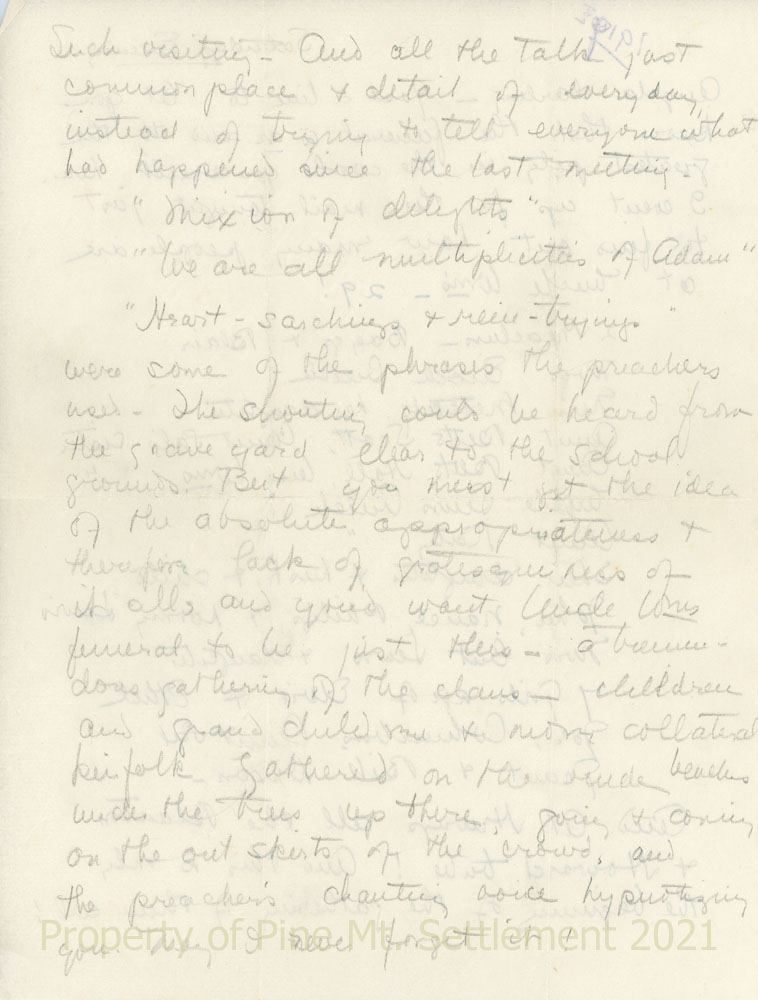 1919?
Such visiting - And all the talk just
commonplace & detail of everyday,
instead of trying to tell everyone what
had happened since the last meeting -
"Mixion of delights"
"We are all multiplicities of Adam"
"Heart-sarchings & rein-tryings"
were some of the phrases the preachers
used - The shouting could be heard from
the grave yard clear to the school
grounds. But you must get the idea
of the absolute appropriateness &
therefore lack of grotesqueness of
it all, and you'd want Uncle Wms
funeral to be just this - a tremen-
dous gathering of the clans - children
and grand children & more collateral
kinfolk gathered on the rude benches
under the trees up there, going & coming
on the out skirts of the crowd, and
the preacher's chanting voice hypnotizing
you. May I never forget it!
Property of Pine Mt. Settlement 2021